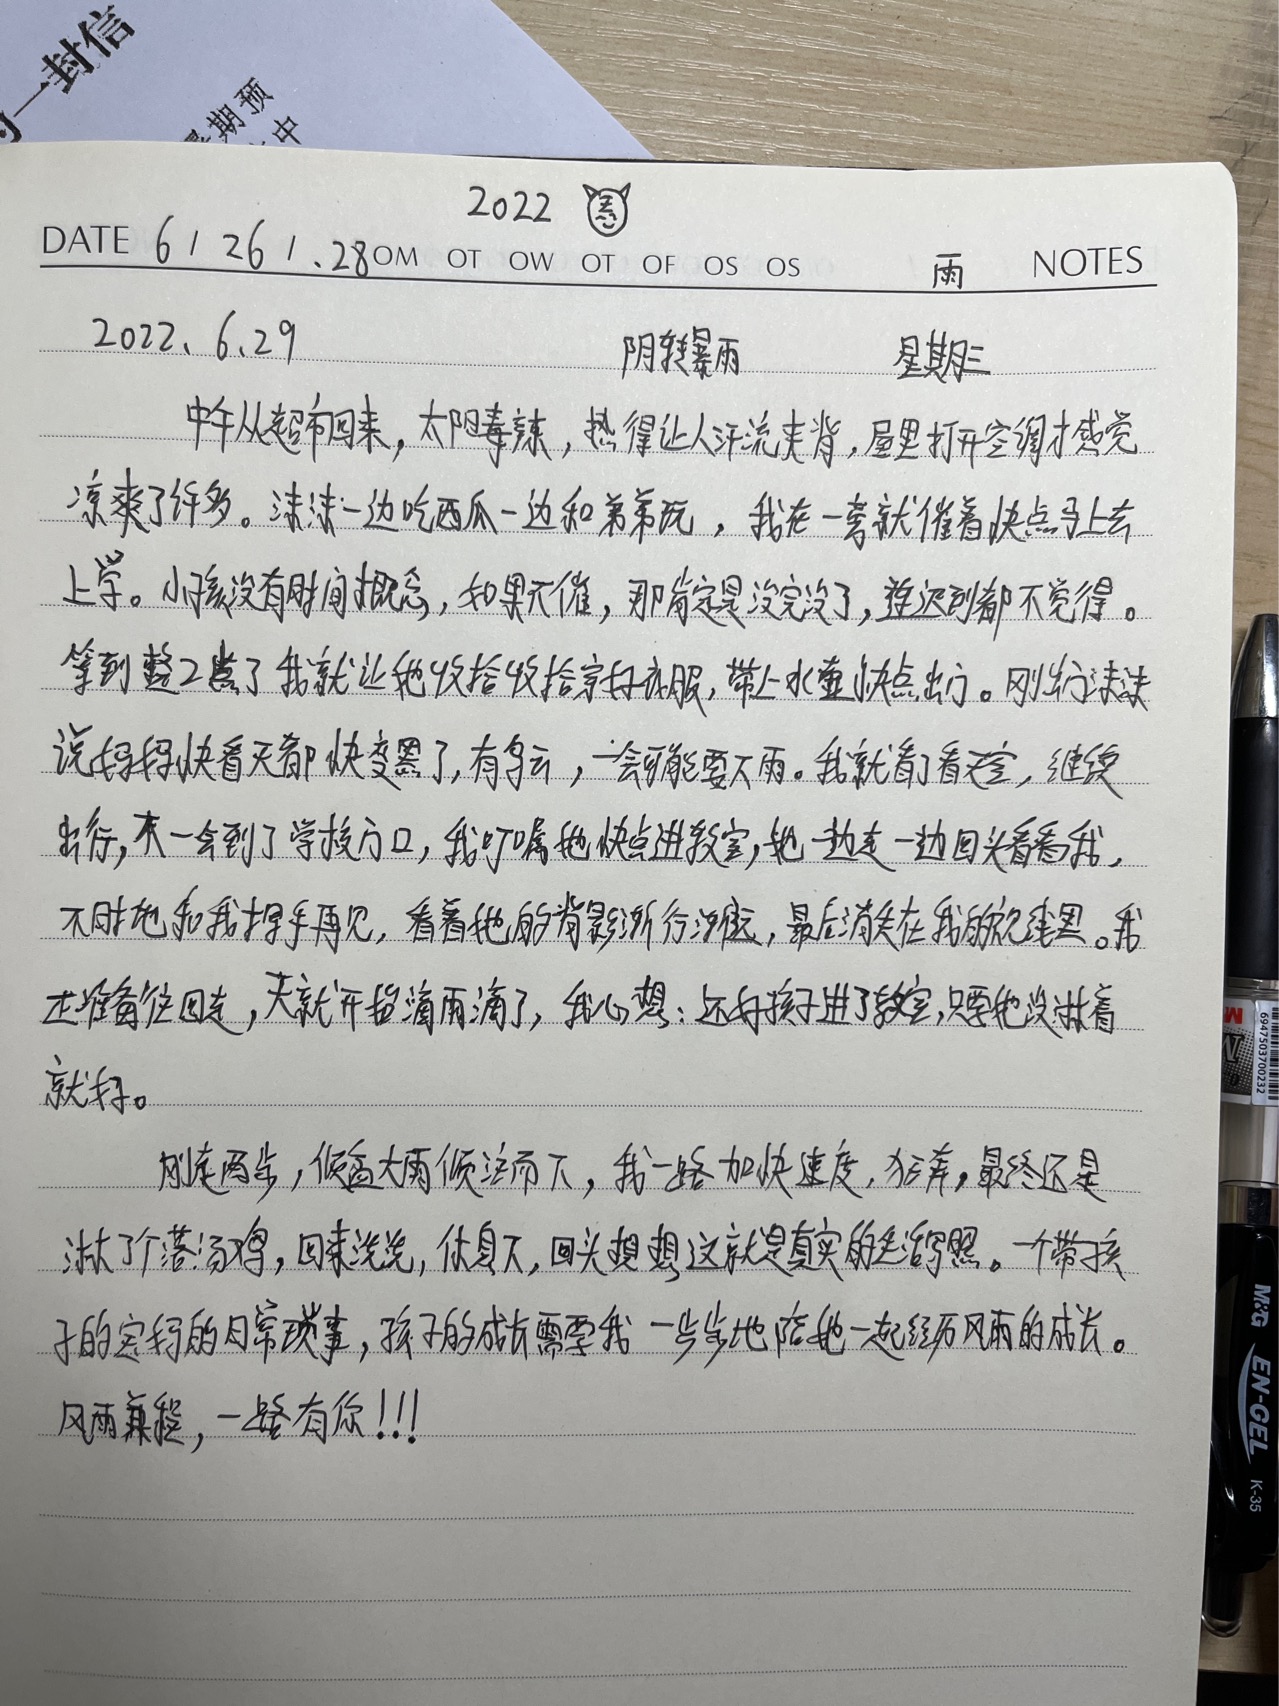 一封信
期预
中
2022
DATE 6 / 26 / .28 OM OT OW OT OF OS OS 雨 NOTES
2022、6、29 阴转暴雨 星期三
中午从超市回来，太阳毒辣，热得让人汗流夹背，屋里打开空调才感觉
凉爽了许多。沫沫一边吃西瓜一边和弟弟玩，我在一旁就催着快点马上去
上学。小孩没有时间概念，如果不催，那肯定是没完没了，连迟到都不觉得。
等到整2点了我就让她收拾收拾穿好衣服，带上水壶快点出行。刚出行沫沫
说妈妈快看天都快变黑了，有乌云，一会可能要下雨。我就看了看天空，继续
出行，不一会到了学校门口，我叮嘱她快点进教室，她一边走一边回头看看我，
不时地和我挥手再见，看着她的背影渐行渐远，最后消失在我的视线里。我
正准备往回走，天就开始滴雨滴了，我心想：还好孩子进了教室，只要她没淋着
就好。
刚走两步，倾盆大雨倾注而下，我一路加快速度，狂奔，最终还是
淋了个落汤鸡，回来洗洗，休息下，回头想想这就是真实的生活写照。一个带孩
子的宝妈的日常琐事，孩子的成长需要我一步步地陪她一起经历风雨的成长。
风雨兼程，一路有你！！！
6947503700232
M&G EN-GEL K-35